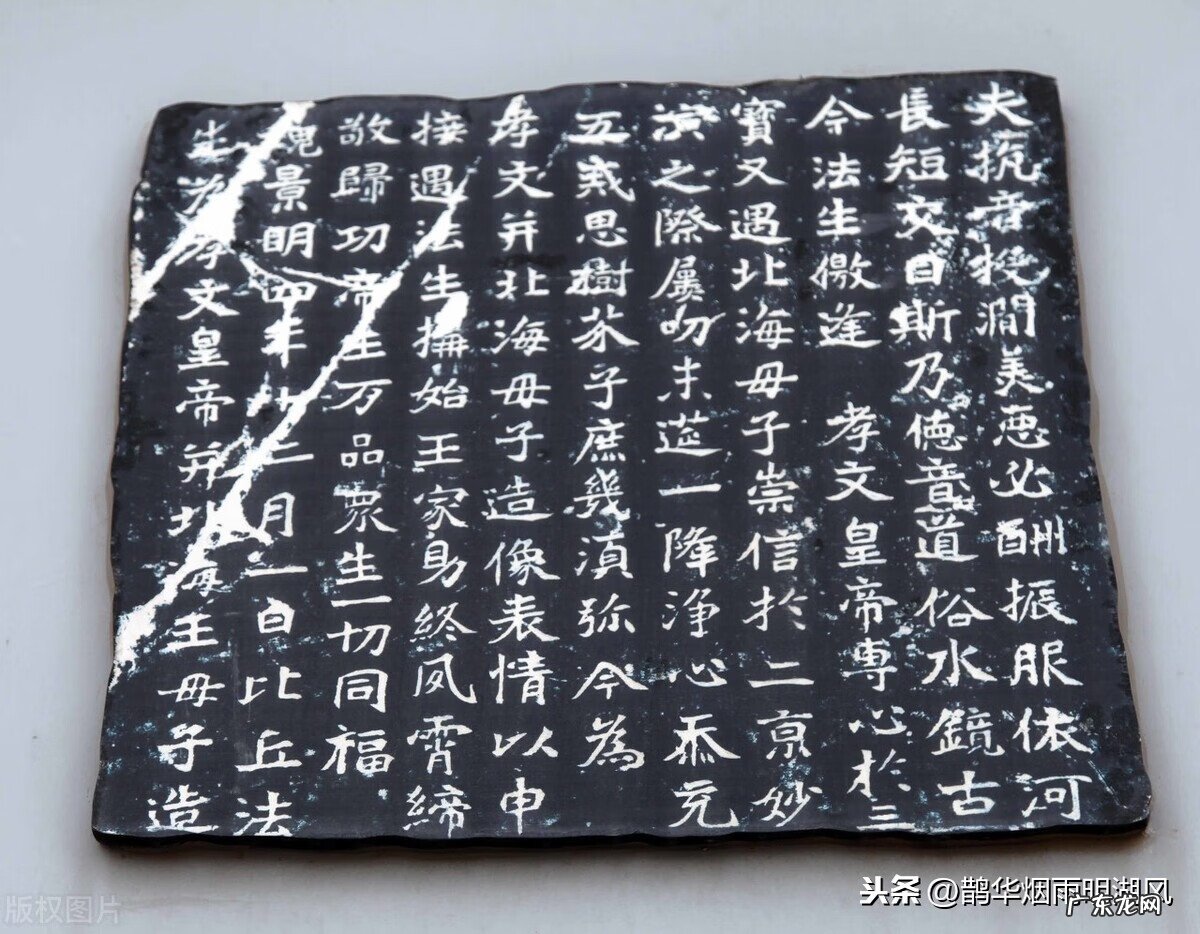 夫抗音投澗美惡必酬振服依河
長短交目斯乃德音道俗水鏡古
今法生儌逢 孝文皇帝專心於三
寶又遇北海母子崇信於二京妙
演之際屢叨末筵一降淨心忝充
五戒思樹芥子庶幾須弥今為
孝文并北海母子造像表情以申
接遇法生構始王家身終夙霄締
敬歸功帝王万品眾生一切同福
魏景明四年十二月一日比丘法
生為孝文皇帝并北海王母子造
头条 @鹊华烟雨明湖风
广东龙网
版权图片